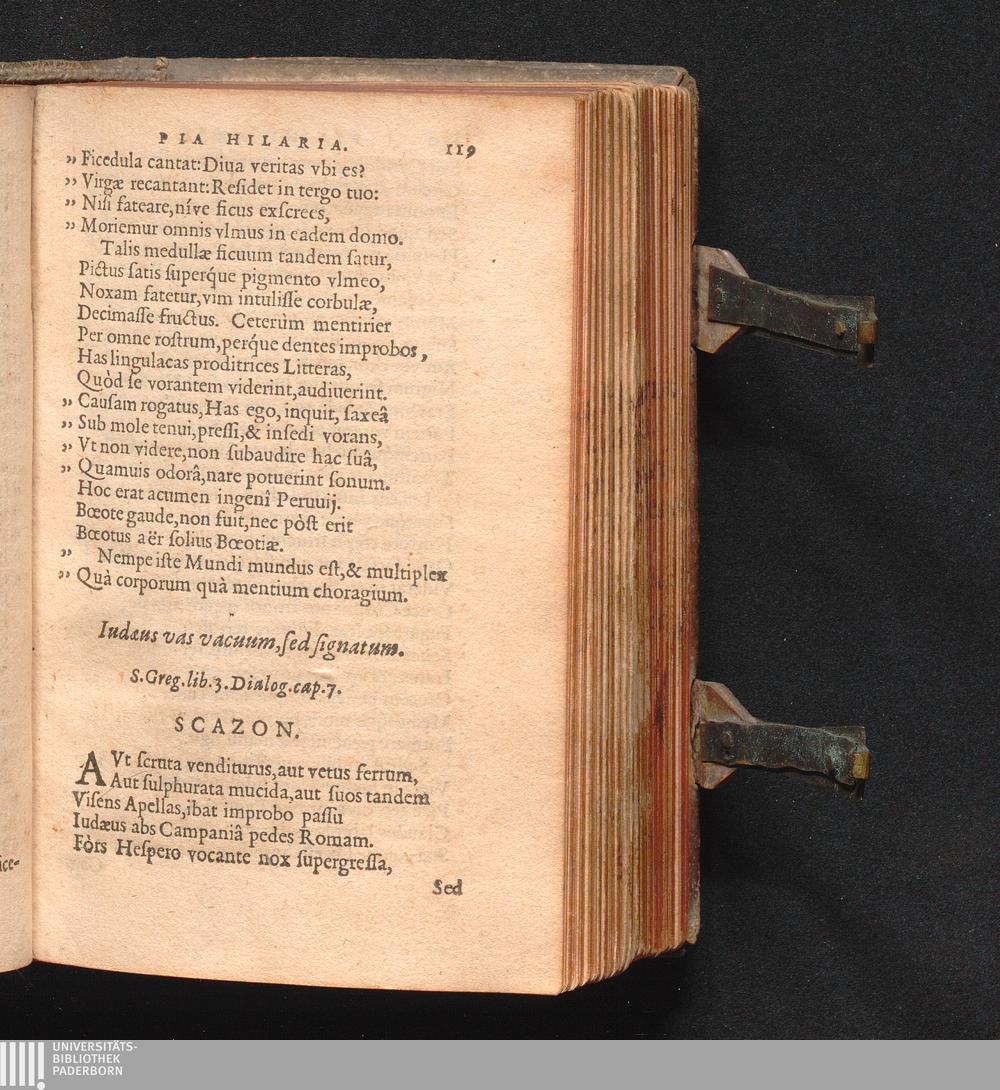 PIA HILARIA. 119
„ Ficedula cantat: Diua veritas vbi es?
„ Virgæ recantant: Reſidet in tergo tuo:
„ Niſi fateare, níve ficus exſcrees,
„ Moriemur omnis vlmus in eadem domo.
Talis medullæ ficuum tandem ſatur,
Pictus ſatis ſuperq́ue pigmento vlmeo,
Noxam fatetur, vim intuliſſe corbulæ,
Decimaſſe fructus. Ceterùm mentirier
Per omne roſtrum, perq́ue dentes improbos,
Has lingulacas proditrices Litteras,
Quòd ſe vorantem viderint, audiuerint.
„ Cauſam rogatus, Has ego, inquit, ſaxeâ
„ Sub mole tenui, preſſi, & inſedi vorans,
„ Vt non videre, non ſubaudire hac ſuâ,
„ Quamuis odorâ, nare potuerint ſonum.
Hoc erat acumen ingenî Peruuij.
Bœote gaude, non fuit, nec pòſt erit
Bœotus aër ſolius Bœotiæ.
„ Nempe iſte Mundi mundus eſt, & multiplex
„ Quà corporum quà mentium choragium.
Iudæus vas vacuum, ſed ſignatum.
S. Greg. lib. 3. Dialog. cap. 7.
SCAZON.
AVt ſcruta venditurus, aut vetus ferrum,
Aut ſulphurata mucida, aut ſuos tandem
Viſens Apellas, ibat improbo paſſu
Iudæus abs Campaniâ pedes Romam.
Fòrs Heſpero vocante nox ſupergreſſa,
Sed
ice-
UNIVERSITÄTS-
BIBLIOTHEK
PADERBORN